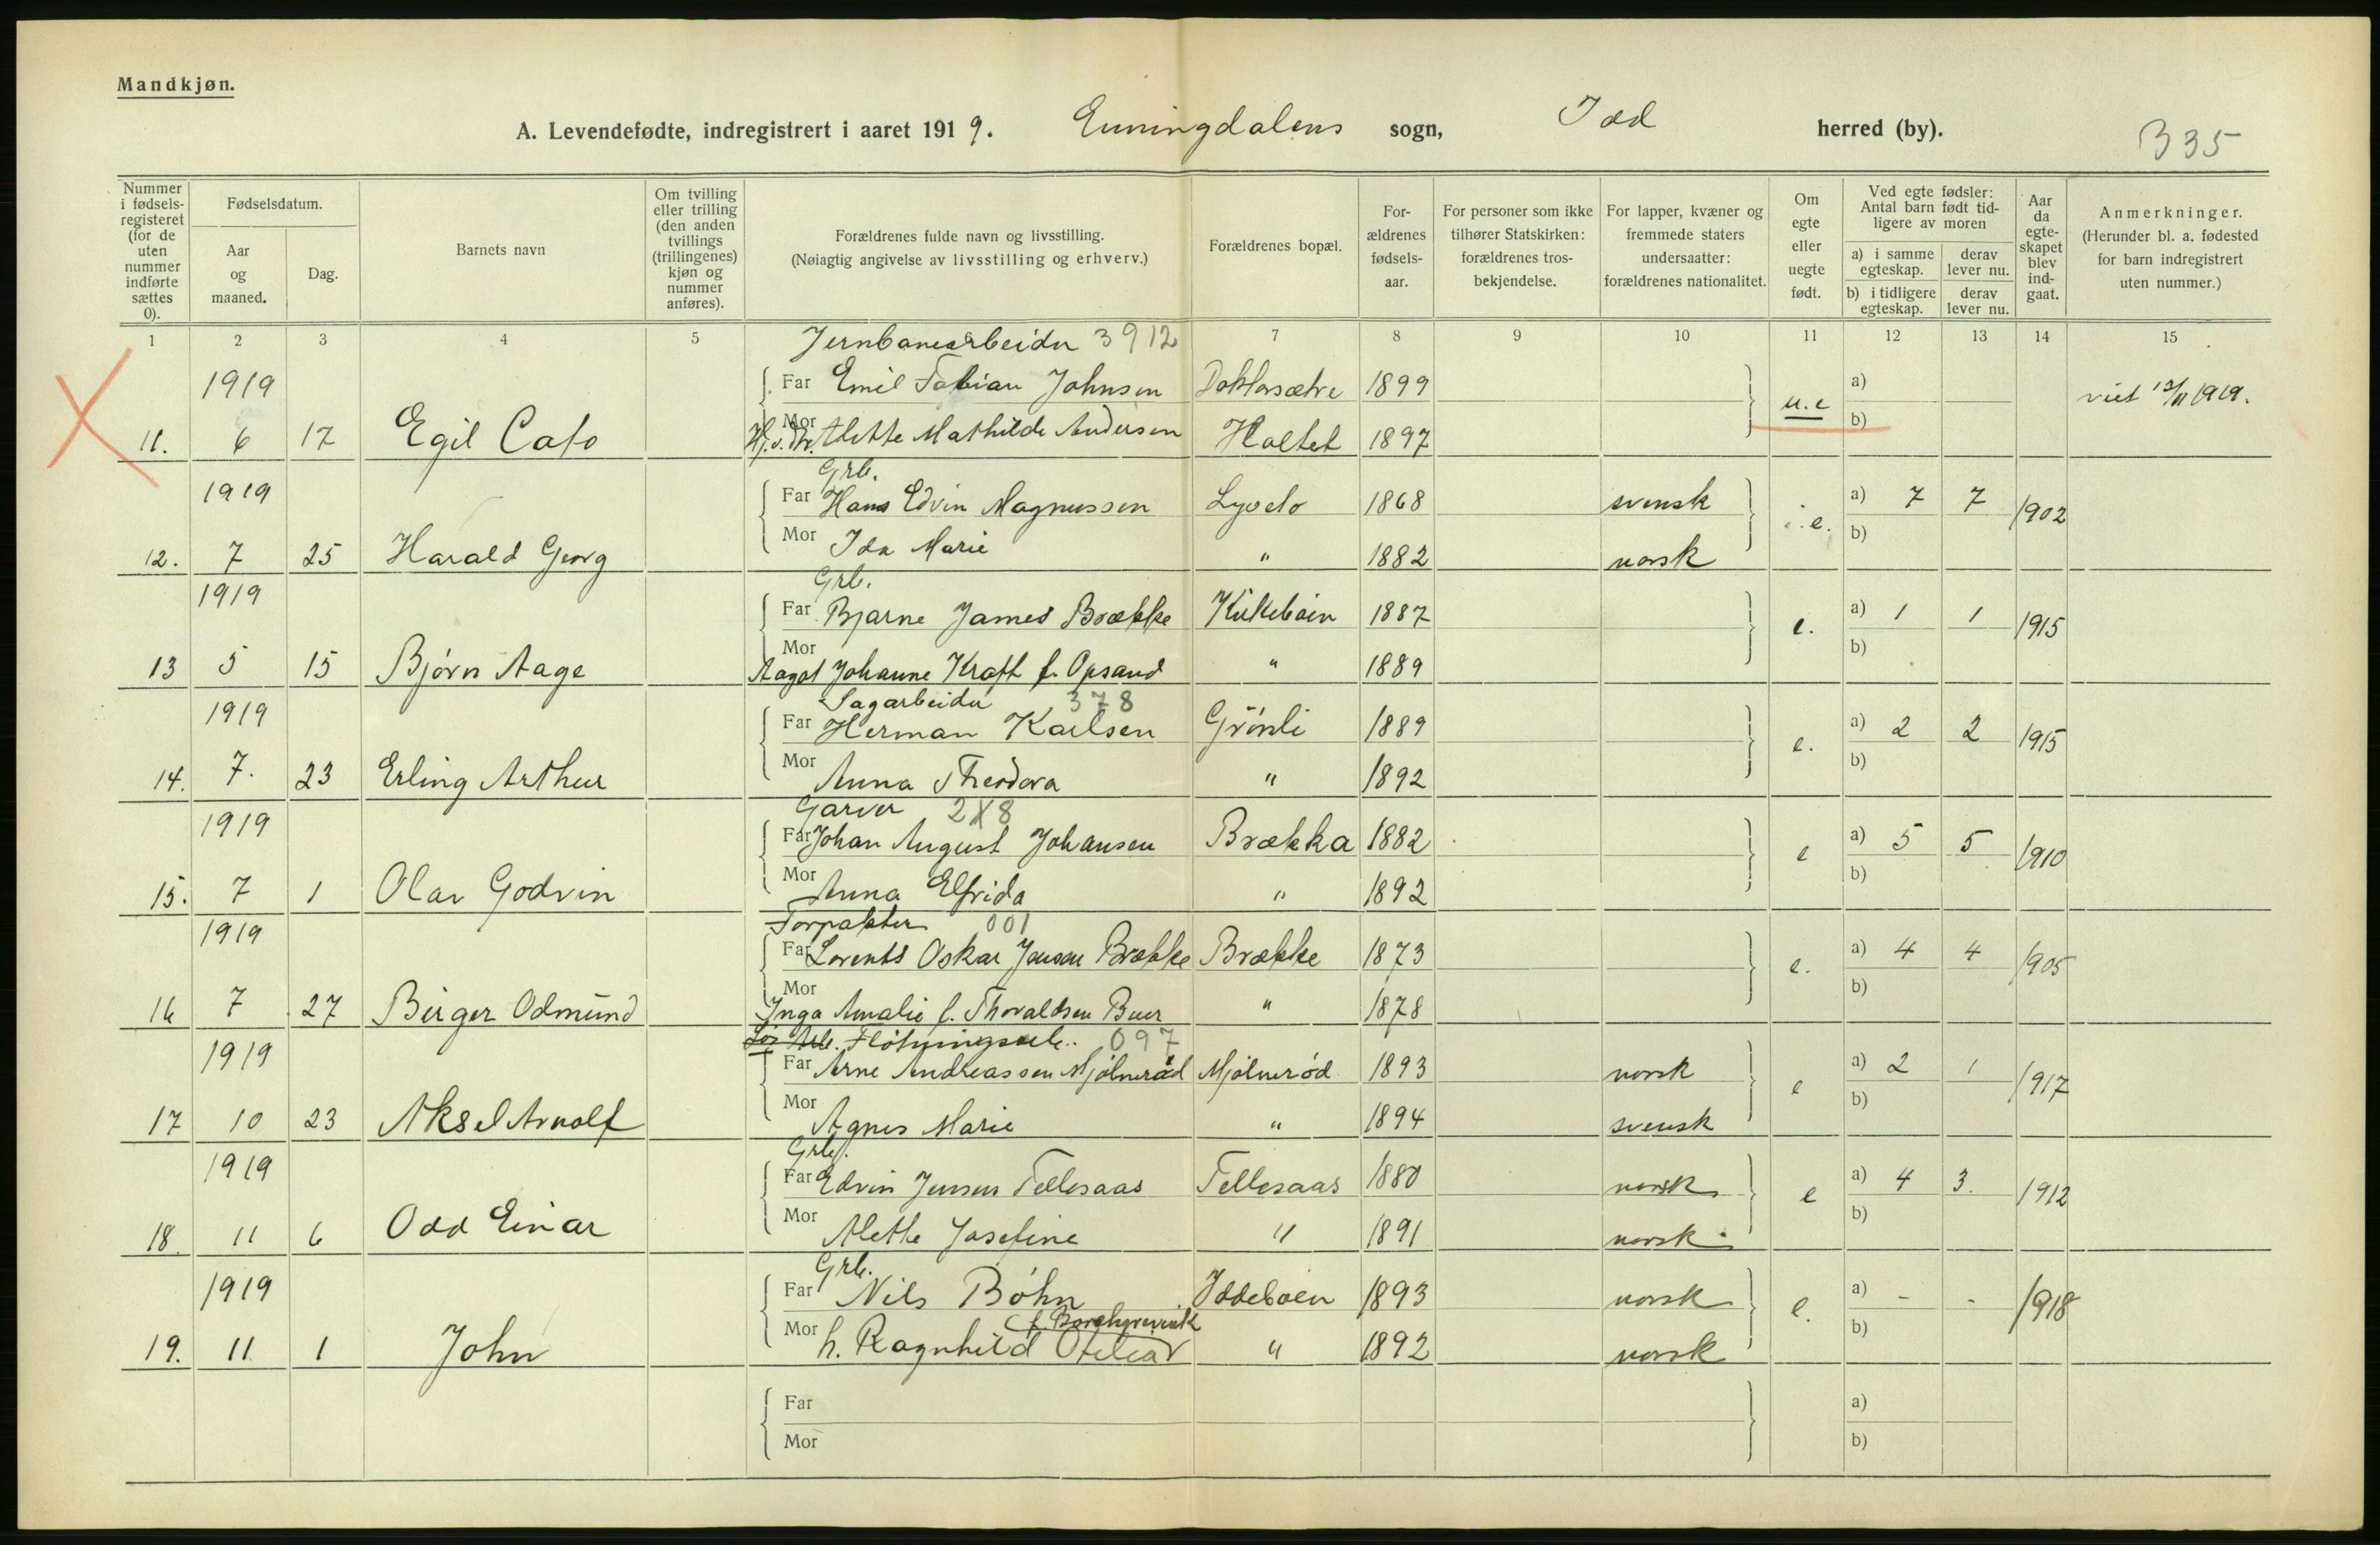 Mandkjøn.
A. Levendefødte, indregistrert i aaret 1919. Enningdalens sogn, Idd herred (by).
B 35
Nummer i fødselsregisteret (for de uten nummer indførte sættes 0).
Fødselsdatum.
Aar og maaned.
Dag.
Barnets navn
Om tvilling eller trilling (den anden tvillings (trillingenes) kjøn og nummer anføres).
Forældrenes fulde navn og livsstilling.
(Nøiagtig angivelse av livsstilling og erhverv.)
Forældrenes bopæl.
Forældrenes fødselsaar.
For personer som ikke tilhører Statskirken: forældrenes trosbekjendelse.
For lapper, kvæner og fremmede staters undersaatter: forældrenes nationalitet.
Om egte eller uegte født.
Ved egte fødsler: Antal barn født tidligere av moren
a) i samme egteskap.
derav lever nu.
b) i tidligere egteskap.
derav lever nu.
Aar da egteskapet blev indgaat.
Anmerkninger.
(Herunder bl. a. fødested for barn indregistrert uten nummer.)
1 2 3 4 5 7 8 9 10 11 12 13 14 15
Jernbanearbeider 3912
1919 Far Emil Fabian Johnsen Doktorsætre 1899 a)
11. 6 17 Egil Cato Mor Alette Mathilde Andersen Holtet 1897 u.e b) viet 13/11 1919.
Grb.
1919 Far Hans Edvin Magnussen 1868 svensk e. a) 7 7 1902
12. 7 25 Harald Georg Mor Ida Marie " 1882 norsk b)
Grb.
1919 Far Bjarne James Brække Kirkebøen 1887 e. a) 1 1 1915
13 5 15 Bjørn Aage Mor Aagot Johanne Kraft f. Opsand " 1889 b)
Sagarbeider 378
1919 Far Herman Karlsen Grönli 1889 e. a) 2 2 1915
14. 7. 23 Erling Arthur Mor Anna Theodora " 1892 b)
Garver 2X8
1919 Far Johan August Johansen Brækka 1882 e a) 5 5 1910
15. 7 1 Olav Godvin Mor Anna Elfrida " 1892 b)
Forpakter 001
1919 Far Lorents Oskar Jensen Brække Brække 1873 e. a) 4 4 1905
16 7 27 Birger Odmund Mor Inga Amalie f. Thoraldsen Buer " 1878 b)
Fløtningsarb. 097
1919 Far Arne Andreassen Mjølnerød Mjølnerød 1893 norsk e a) 2 1 1917
17 10 23 Aksel Arnolf Mor Agnes Marie " 1894 svensk b)
Grb.
1919 Far Edvin Jensen Tellesaas Tellesaas 1880 norsk e a) 4 3. 1912
18. 11 6 Odd Einar Mor Alette Josefine " 1891 norsk b)
Grb.
1919 Far Nils Bøhn Iddeboen 1893 norsk e. a) - - 1918
19. 11 1 John Mor h. Ragnhild " 1892 norsk b)
Far a)
Mor b)